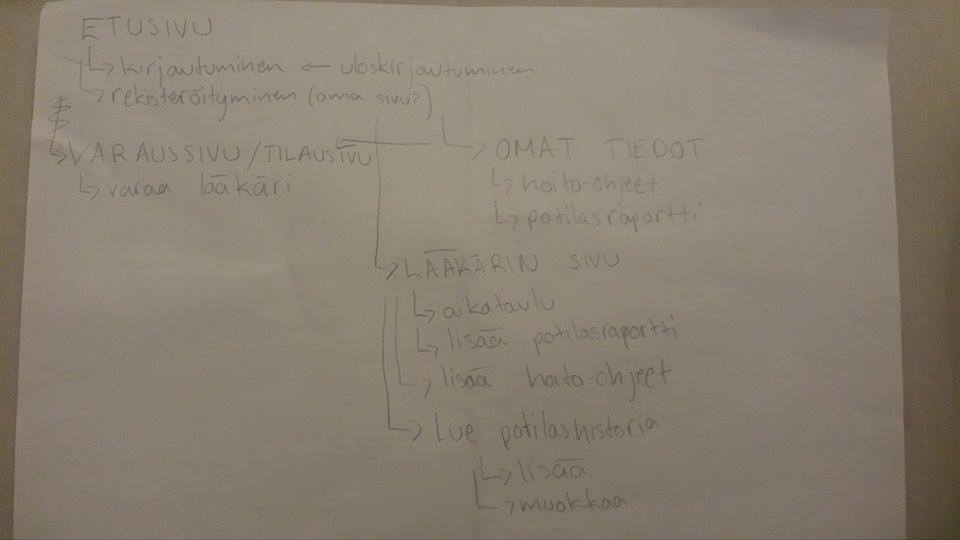 ETUSIVU
kirjautuminen ← uloskirjautuminen
rekisteröityminen (oma sivu?)
VARAUSSIVU/TILAUSIVU
varaa lääkäri
OMAT TIEDOT
hoito-ohjeet
potilasraportti
LÄÄKÄRIN SIVU
aikataulu
lisää potilasraportti
lisää hoito-ohjeet
lue potilashistoria
lisää
muokkaa